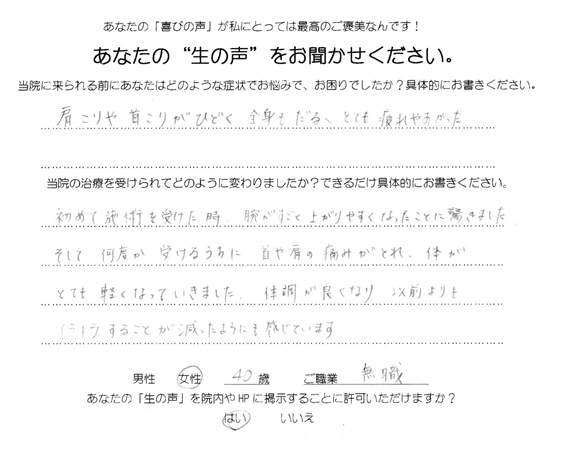 あなたの「喜びの声」が私にとっては最高のご褒美なんです！
あなたの“生の声”をお聞かせください。
当院に来られる前にあなたはどのような症状でお悩みで、お困りでしたか？具体的にお書きください。
肩こりや 首こりがひどく 全身もだるく、とても 疲れやすかった
当院の治療を受けられてどのように変わりましたか？できるだけ具体的にお書きください。
初めて施術を受けた時、腕がすごく上がりやすくなったことに驚きました
そして 何度か 受けるうちに 首や肩の痛みがとれ、体が
とても 軽くなっていきました。体調が良くなり 以前よりも
イライラすることが減ったようにも感じています
男性 女性 40歳 ご職業 無職
あなたの「生の声」を院内やHPに掲示することに許可いただけますか？
はい いいえ